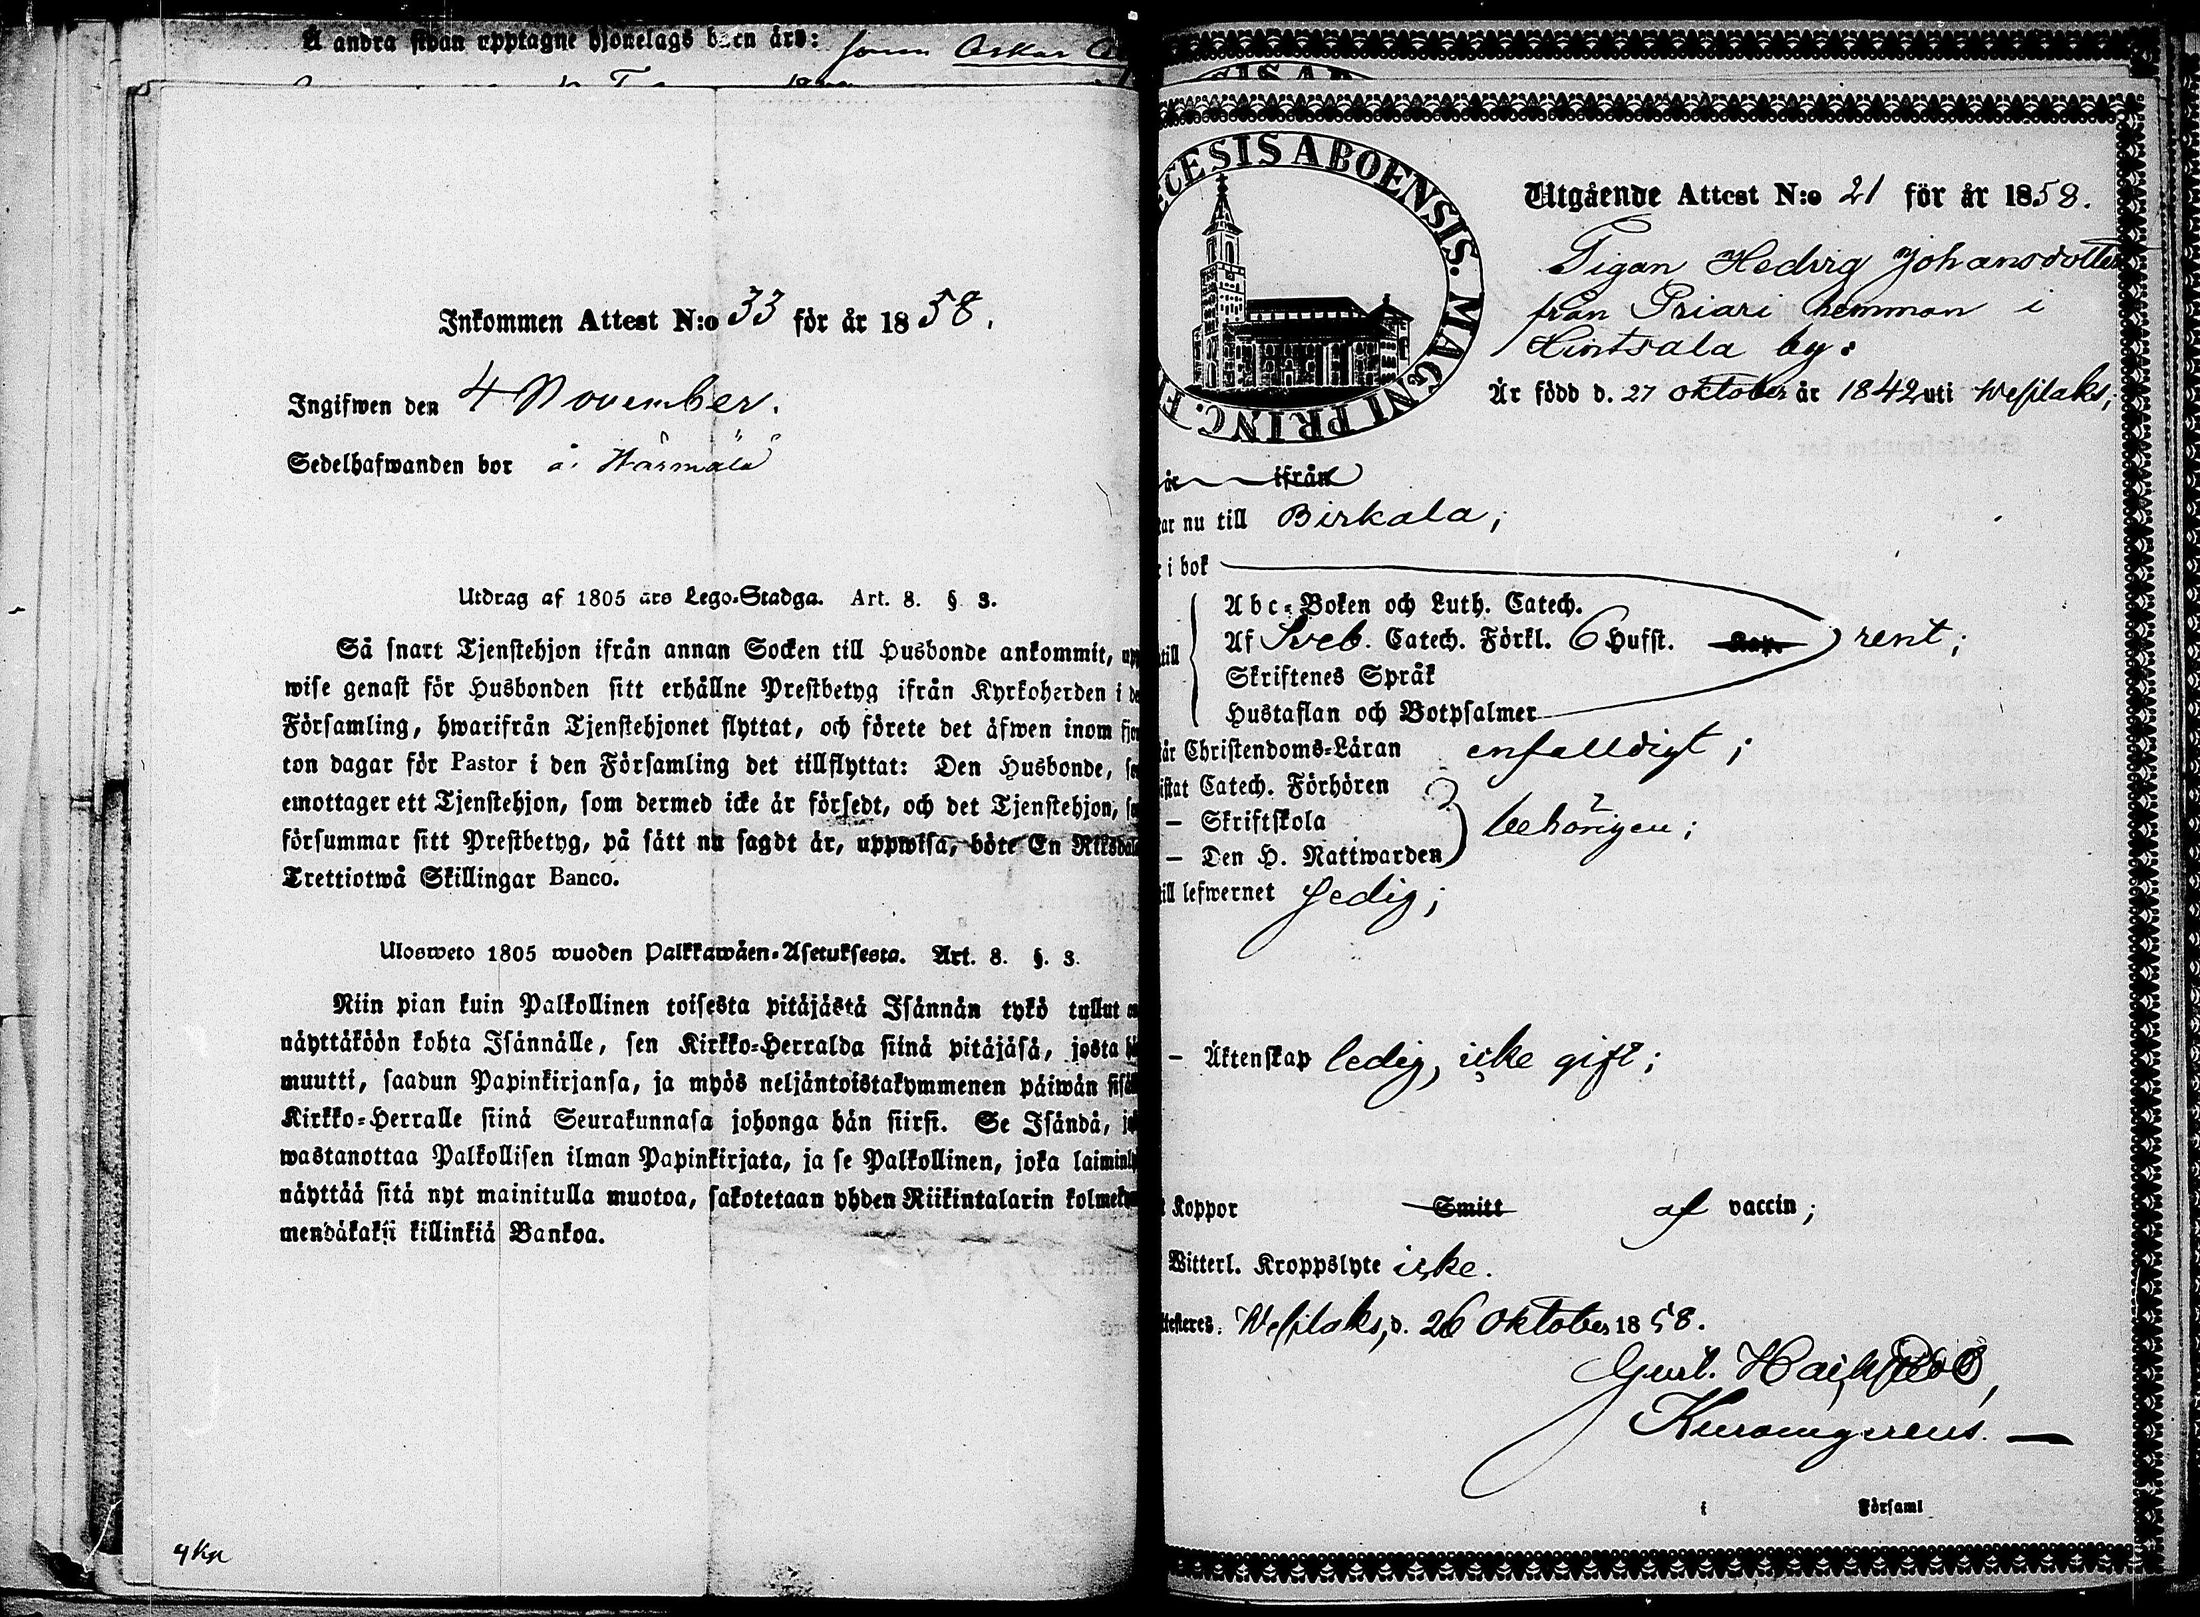 Å andra sidan upptagne hjonelags barn äro: Sonen Oskar
Inkommen Attest N:o 33 för år 1858.
Ingifwen den 4 November.
Sedelhafwanden bor å Härmälä
Utdrag af 1805 års Lego-Stadga. Art. 8. § 3.
Så snart Tjenstehjon ifrån annan Socken till Husbonde ankommit, upp
wise genast för Husbonden sitt erhållne Prestbetyg ifrån Kyrkoherden i de
Församling, hwarifrån Tjenstehjonet flyttat, och förete det äfwen inom fjor
ton dagar för Pastor i den Församling det tillflyttat: Den Husbonde, so
emottager ett Tjenstehjon, som dermed icke är försedt, och det Tjenstehjon, so
försummar sitt Prestbetyg, på sätt nu sagdt är, uppwisa, böte En Riksdal
Trettiotwå Skillingar Banco.
Ulosweto 1805 wuoden Palkkawäen-Asetuksesta. Art. 8. §. 3.
Niin pian kuin Palkollinen toisesta pitäjästä Isännän tykö tullut on
näyttäköön kohta Isännälle, sen Kirkko-Herralda siinä pitäjäsä, josta hän
muutti, saadun Papinkirjansa, ja myös neljäntoistakymmenen päiwän sisäl
Kirkko-Herralle siinä Seurakunnasa johonga hän siirsi. Se Isändä, jo
wastanottaa Palkollisen ilman Papinkirjata, ja se Palkollinen, joka laiminly
näyttää sitä nyt mainitulla muotoa, sakotetaan yhden Riikintalarin kolmeky
mendäkaksi killinkiä Bankoa.
4 Kp
ECESIS ABOENSIS. MAGNI PRINC. F
Utgående Attest N:o 21 för år 1858.
Pigan Hedvig Johansdotter
från Priari hemman i
Hintsala by:
Är född d. 27 oktober år 1842 uti Wesilaks;
år ifrån
tar nu till Birkala;
r i bok
till
Abc-Boken och Luth. Catech.
Af Sveb. Catech. Förkl. 6 Hufst. Kap. rent;
Skriftenes Språk
Hustaflan och Botpsalmer
tår Christendoms-Läran enfaldigt;
istat Catech. Förhören
– Skriftskola behörigen;
– Den H. Nattwarden
till lefwernet Sedig;
– Äktenskap ledig, icke gift;
t Koppor Smitt af vaccin;
Witterl. Kroppslyte icke.
ttesteres, Wesilaks, d. 26 Oktober 1858.
Gust.
i Församl